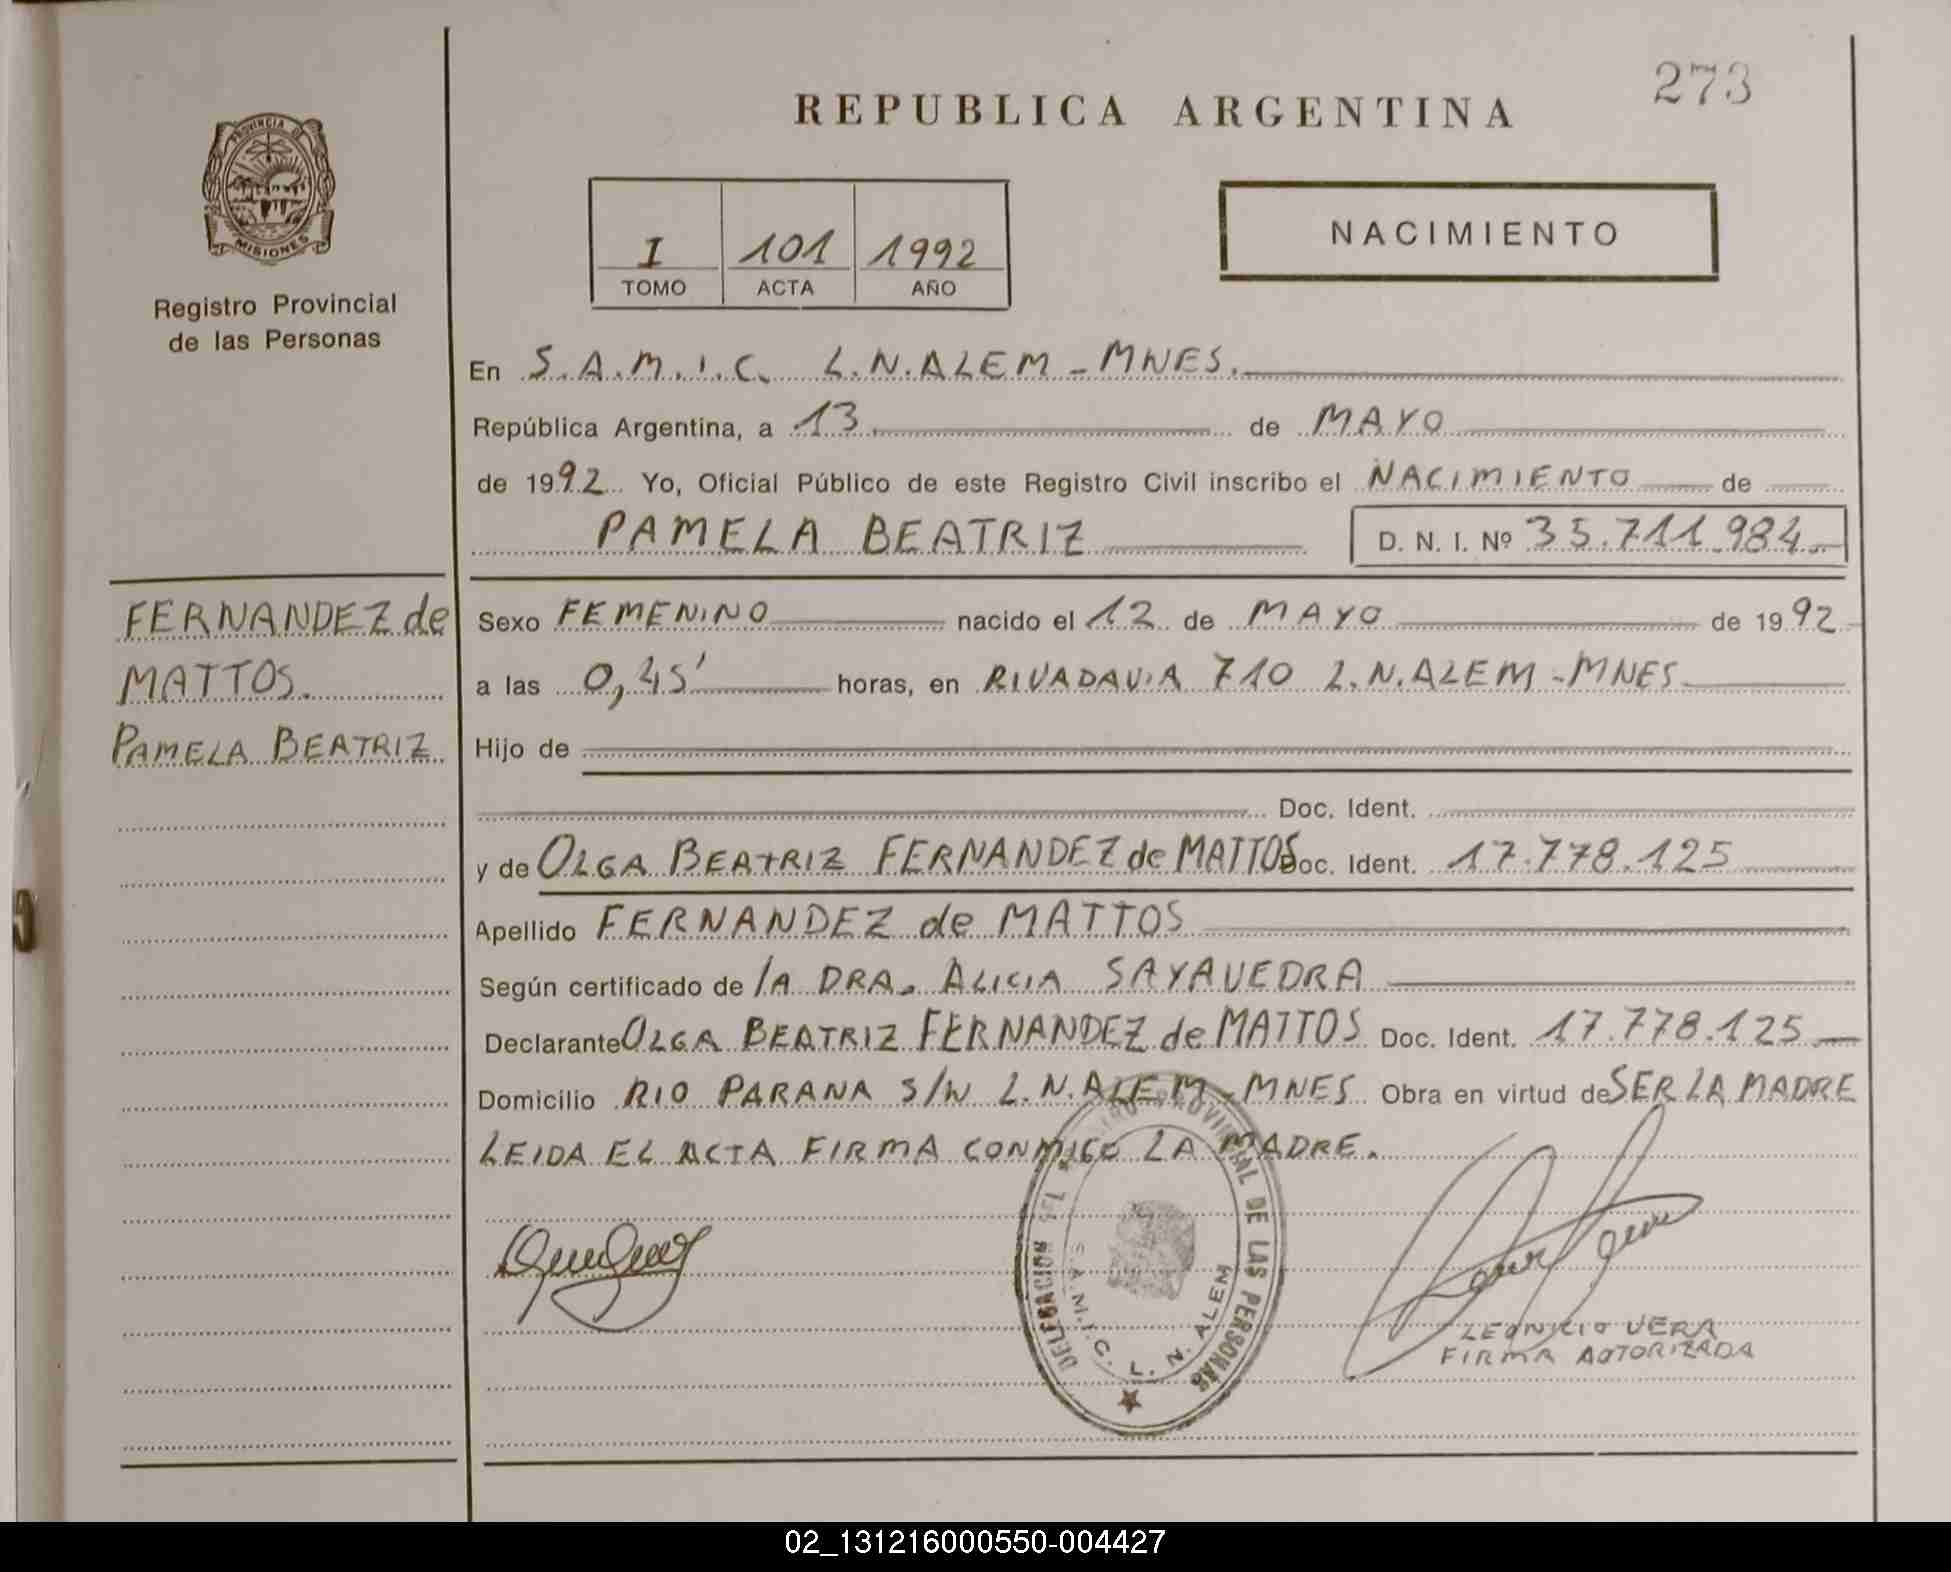 273
REPUBLICA ARGENTINA
PROVINCIA DE
MISIONES
Registro Provincial
de las Personas
I 101 1992
TOMO ACTA AÑO
NACIMIENTO
En S.A.M.I.C. L.N.ALEM - MNES.
República Argentina, a 13 de MAYO
de 1992 Yo, Oficial Público de este Registro Civil inscribo el NACIMIENTO de
PAMELA BEATRIZ D. N. I. Nº 35.711.984
FERNANDEZ de
MATTOS.
PAMELA BEATRIZ
Sexo FEMENINO nacido el 12 de MAYO de 1992
a las 0,45' horas, en RIVADAVIA 710 L.N.ALEM - MNES
Hijo de
Doc. Ident.
y de OLGA BEATRIZ FERNANDEZ de MATTOS Doc. Ident. 17.778.125
Apellido FERNANDEZ de MATTOS
Según certificado de lA DRA. ALICIA SAYAVEDRA
Declarante OLGA BEATRIZ FERNANDEZ de MATTOS Doc. Ident. 17.778.125
Domicilio RIO PARANA S/N L.N.ALEM - MNES Obra en virtud de SER LA MADRE
LEIDA EL ACTA FIRMA CONMIGO LA MADRE.
DELEGACION DEL REGISTRO PROVINCIAL DE LAS PERSONAS
S.A.M.I.C. L. N. ALEM
LEONICIO VERA
FIRMA AUTORIZADA
02_131216000550-004427